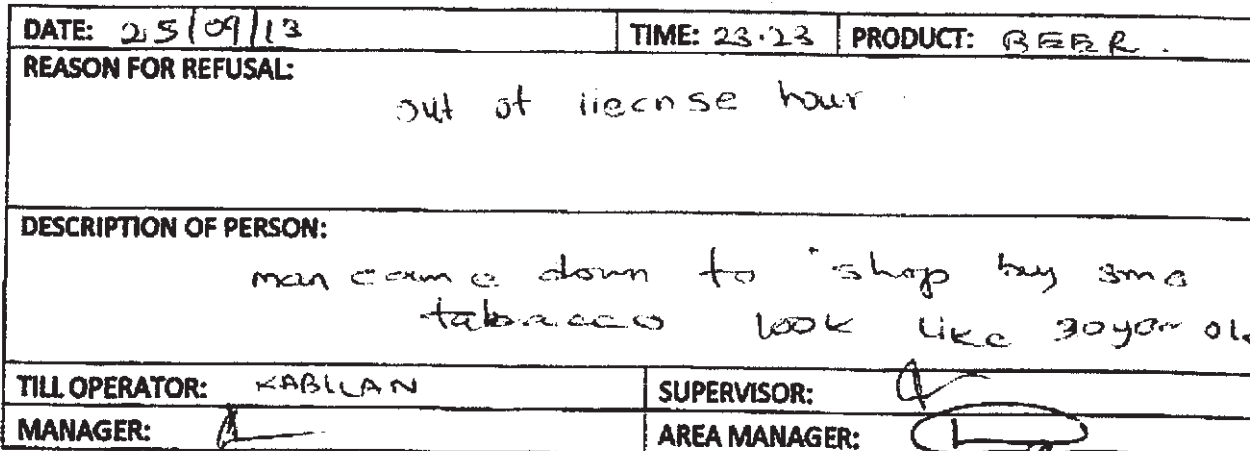 DATE: 25/09/13 TIME: 23.23 PRODUCT: BEER.
REASON FOR REFUSAL:
out of liecnse hour
DESCRIPTION OF PERSON:
man came down to shop buy
tabacco look like 30 year old
TILL OPERATOR: KABILAN SUPERVISOR:
MANAGER: AREA MANAGER: